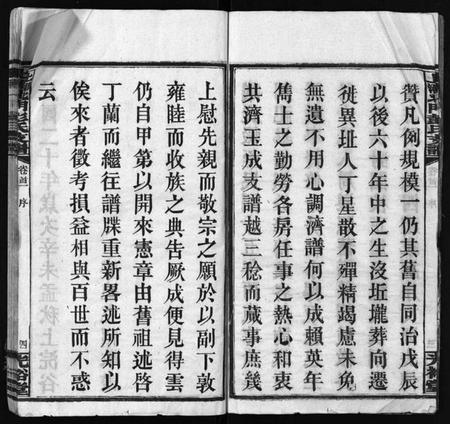 贊凡例規模一仍其舊自同治戊辰
以後六十年中之生沒坵壠葬向遷
徙異址人丁星散不殫精竭慮未免
無遺不用心調濟譜何以成賴英年
儁士之勷勞各房任事之熱心和衷
共濟玉成支譜越三稔而蕆事庶幾
上慰先親而敬宗之願於以副下敦
雍睦而收族之典告厥成便見得雲
仍自甲第以開來憲章由舊祖述啓
丁蘭而繼往譜牒重新畧述所知以
俟來者徵考損益相與百世而不惑
云
支譜
卷首
序
四
光裕堂